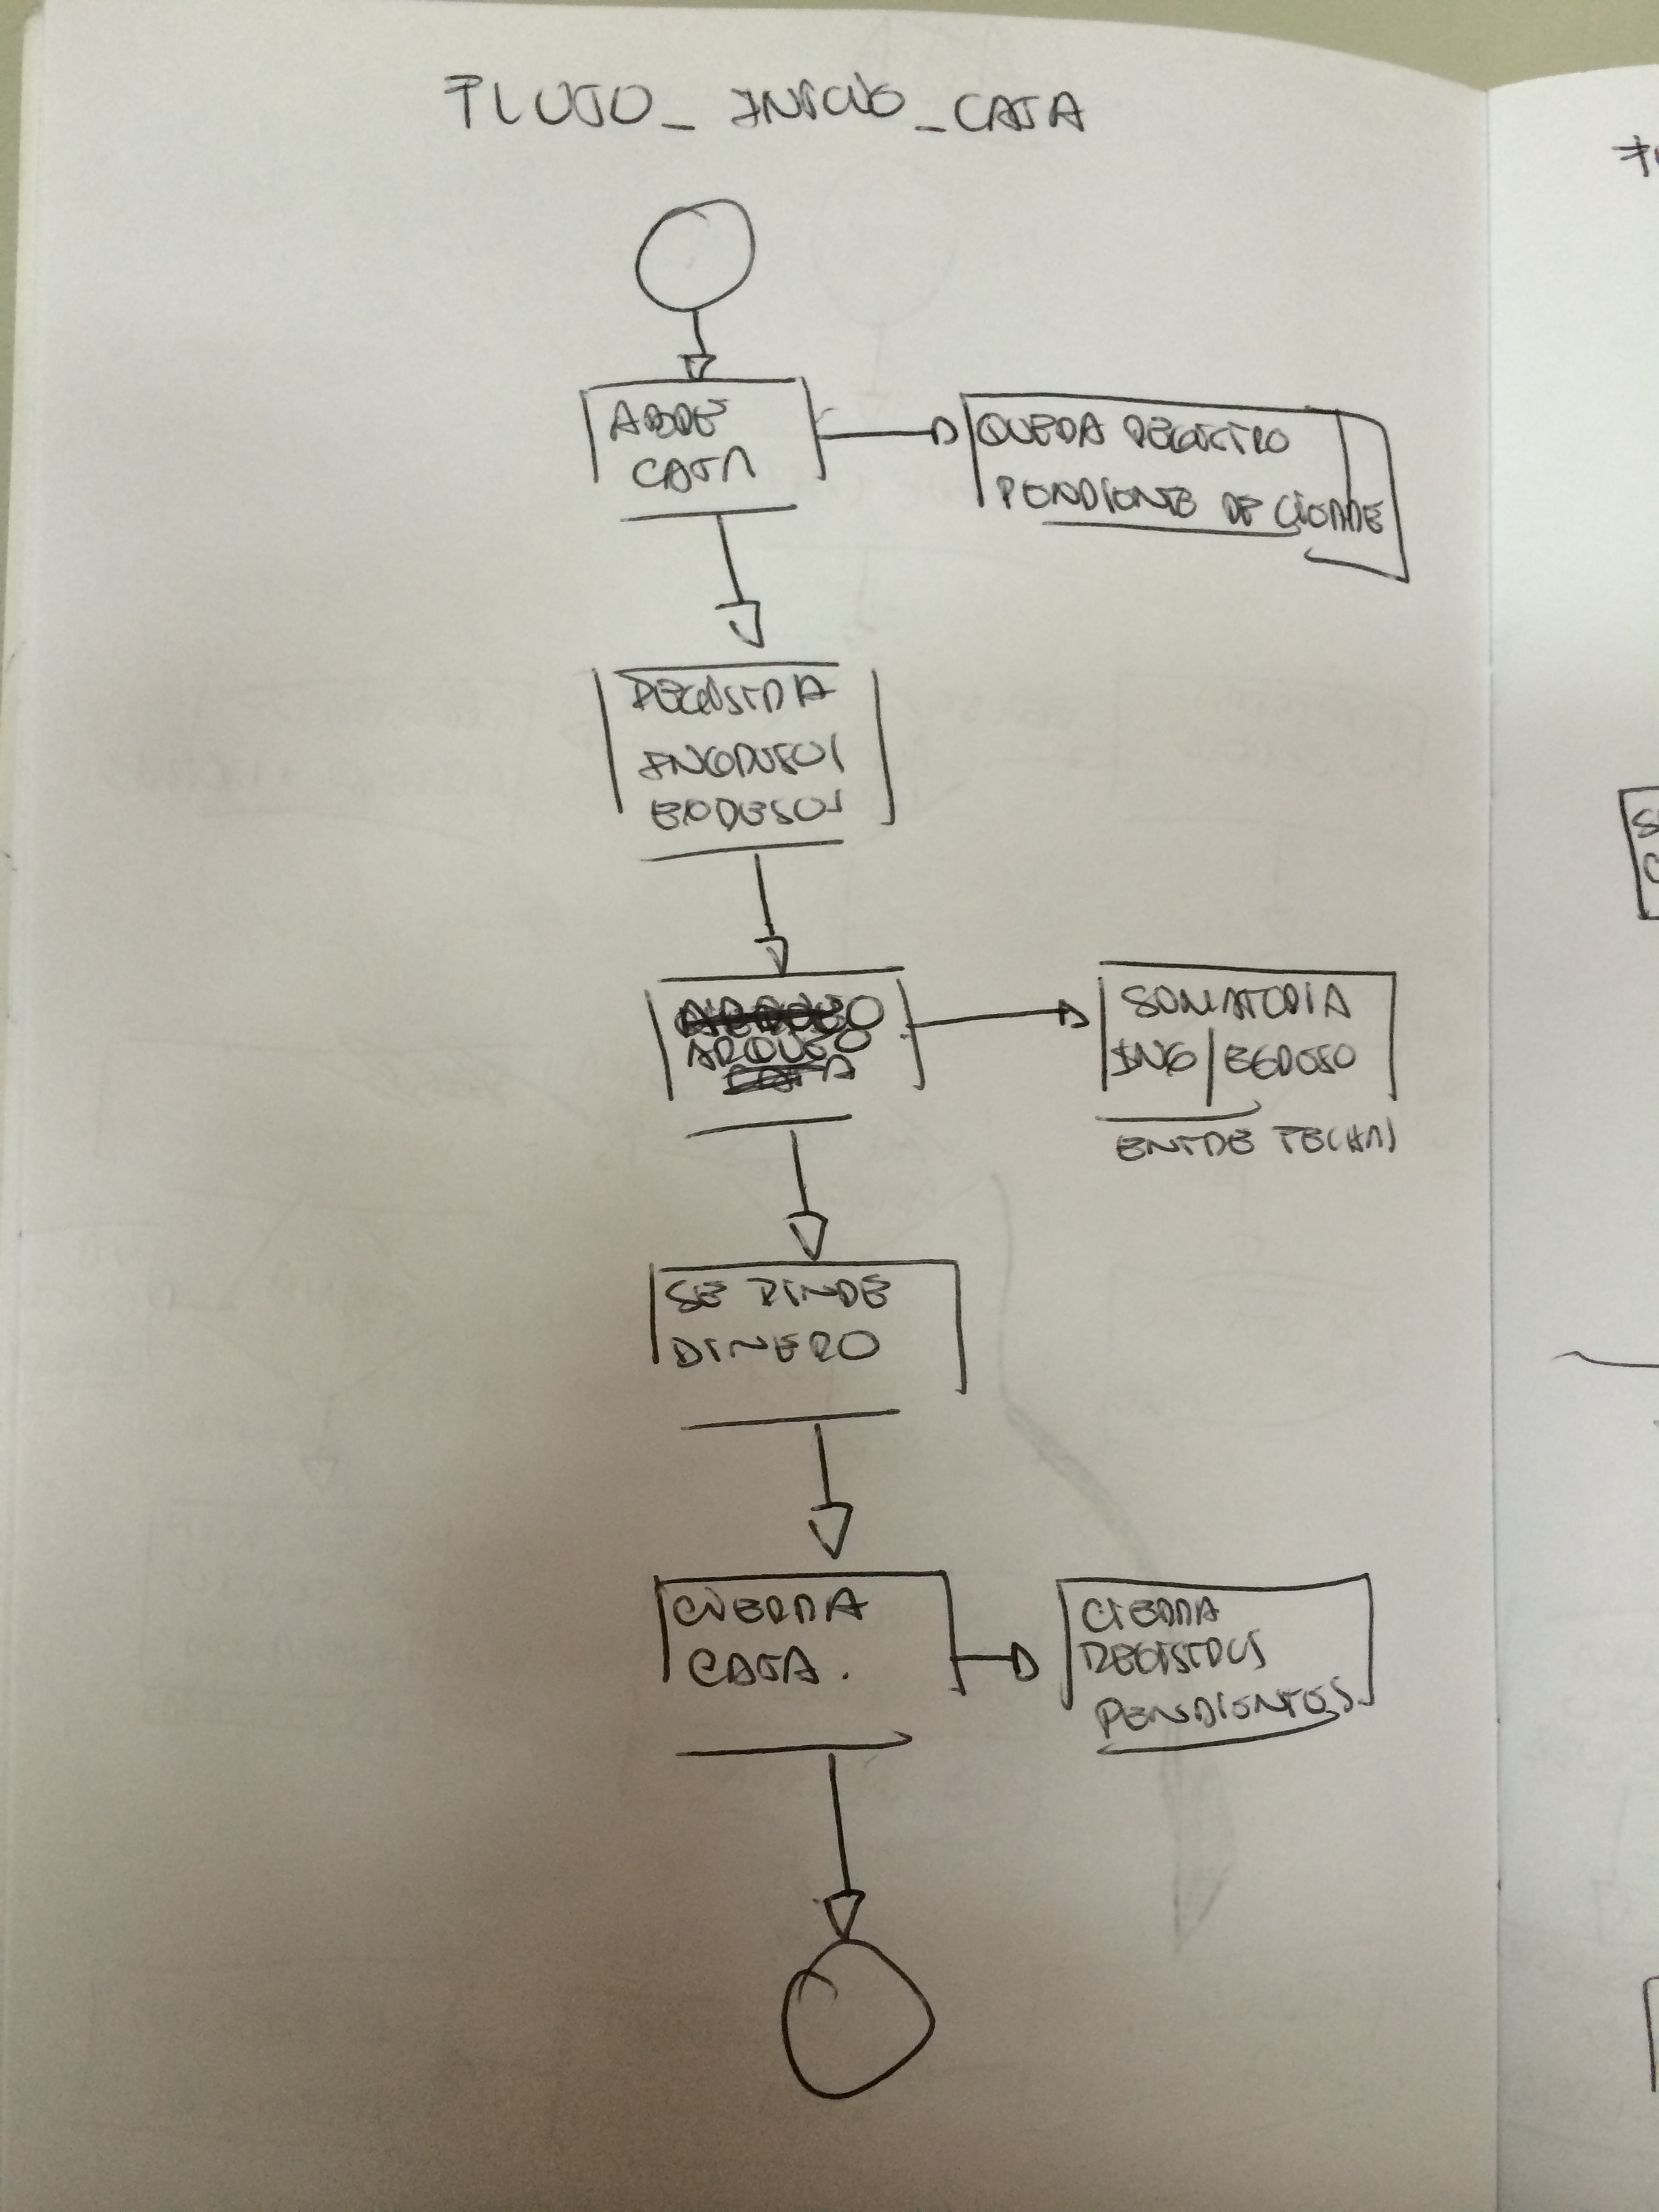 FLUJO_INICIO_CAJA
ABRE
CAJA
QUEDA REGISTRO
PENDIENTE DE CIERRE
REGISTRA
INGRESOS/
EGRESOS
ARQUEO
SUMATORIA
ING/EGRESO
ENTRE FECHAS
SE RINDE
DINERO
CIERRA
CAJA.
CIERRA
REGISTROS
PENDIENTES